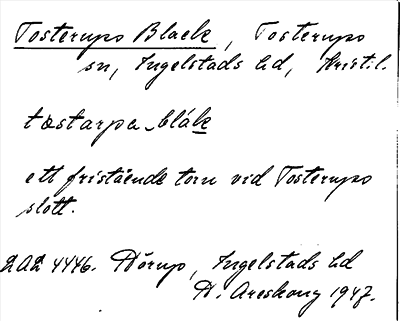 Tosterups Black, Tosterups
sn, Ingelstads hd, Kristil.
tostarps blåk
ett fristående torn vid Tosterups
slott.
LAL 4446. Hörup, Ingelstads hd
H. Areskoug 1947.